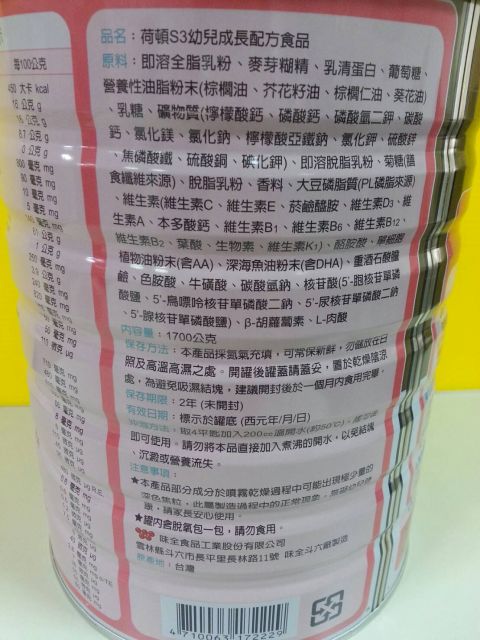 品名：荷頓S3幼兒成長配方食品
原料：即溶全脂乳粉、麥芽糊精、乳清蛋白、葡萄糖、
營養性油脂粉末(棕櫚油、芥花籽油、棕櫚仁油、葵花油)
、乳糖、礦物質(檸檬酸鈣、磷酸鈣、磷酸氫二鉀、碳酸
鈣、氯化鎂、氯化鈉、檸檬酸亞鐵鈉、氯化鉀、硫酸鋅
、焦磷酸鐵、硫酸銅、碘化鉀)、即溶脫脂乳粉、菊糖(膳
食纖維來源)、脫脂乳粉、香料、大豆磷脂質(PL磷脂來源)
、維生素(維生素C、維生素E、菸鹼醯胺、維生素D3、維
生素A、本多酸鈣、維生素B1、維生素B6、維生素B12、
維生素B2、葉酸、生物素、維生素K1)、酪胺酸、單細胞
植物油粉末(含AA)、深海魚油粉末(含DHA)、重酒石酸膽
鹼、色胺酸、牛磺酸、碳酸氫鈉、核苷酸(5'-胞核苷單磷
酸鹽、5'-鳥嘌呤核苷單磷酸二鈉、5'-尿核苷單磷酸二鈉
、5'-腺核苷單磷酸鹽)、β-胡蘿蔔素、L-肉酸
內容量：1700公克
保存方法：本產品採氮氣充填，可常保新鮮，勿儲放在日
照及高溫高濕之處。開罐後罐蓋請蓋妥，置於乾燥陰涼
處，為避免吸濕結塊，建議開封後於一個月內食用完畢。
保存期限：2年 (未開封)
有效日期：標示於罐底 (西元年/月/日)
沖調方法：取4平匙加入200cc溫開水(約50℃)，
即可使用。請勿將本品直接加入煮沸的開水，以免結塊
、沉澱或營養流失。
注意事項：
★本產品部分成分於噴霧乾燥過程中可能出現極少量的
深色焦粒，此屬製造過程中的正常現象，
康，請家長安心使用。
★罐內含脫氧包一包，請勿食用。
味全食品工業股份有限公司
雲林縣斗六市長平里長林路11號 味全斗六廠製造
原產地：台灣
4 710063 172229
每100公克